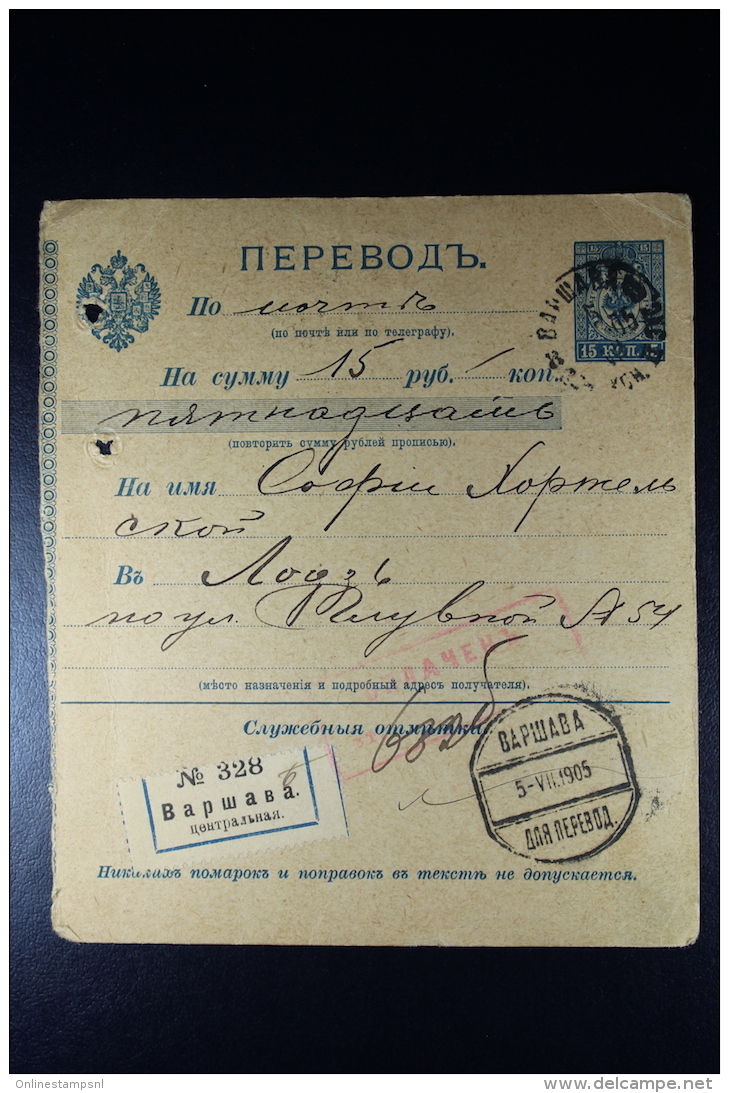 ПЕРЕВОДЪ.
По почтѣ
(по почтѣ или по телеграфу).
15 КОП. 15
На сумму 15 руб. — коп.
пятнадцать
(повторить сумму рублей прописью).
На имя Софіи Хортель
ской
Въ Лодзь
по ул. № 54
(мѣсто назначенія и подробный адресъ получателя).
Служебныя отмѣтки.
ВАРШАВА
5-VII.1905
ДЛЯ ПЕРЕВОД.
№ 328
Варшава.
центральная.
Никакихъ помарокъ и поправокъ въ текстѣ не допускается.
Onlinestampsnl
www.delcampe.net